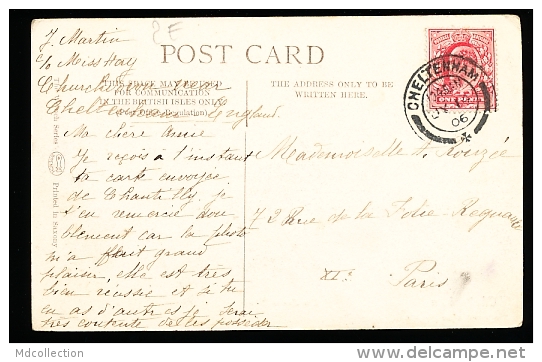 2F
J. Martin
c/o Miss Hay
Church
Cheltenham
England.
POST CARD
THIS SPACE MAY BE USED
FOR COMMUNICATION
IN THE BRITISH ISLES ONLY
THE ADDRESS ONLY TO BE
WRITTEN HERE.
CHELTENHAM
06
Ma chère Amie
Je reçois à l'instant
ta carte envoyée
de Chantilly je
t'en remercie dou
blement car la photo
m'a fait grand
plaisir, elle est très
bien réussie et si tu
en as d'autres je serai
très contente de les posséder
Mademoiselle A. Rouzée
72 Rue de la Folie-Regnault
XIe
Paris
Mdcollection
www.delcampe.net